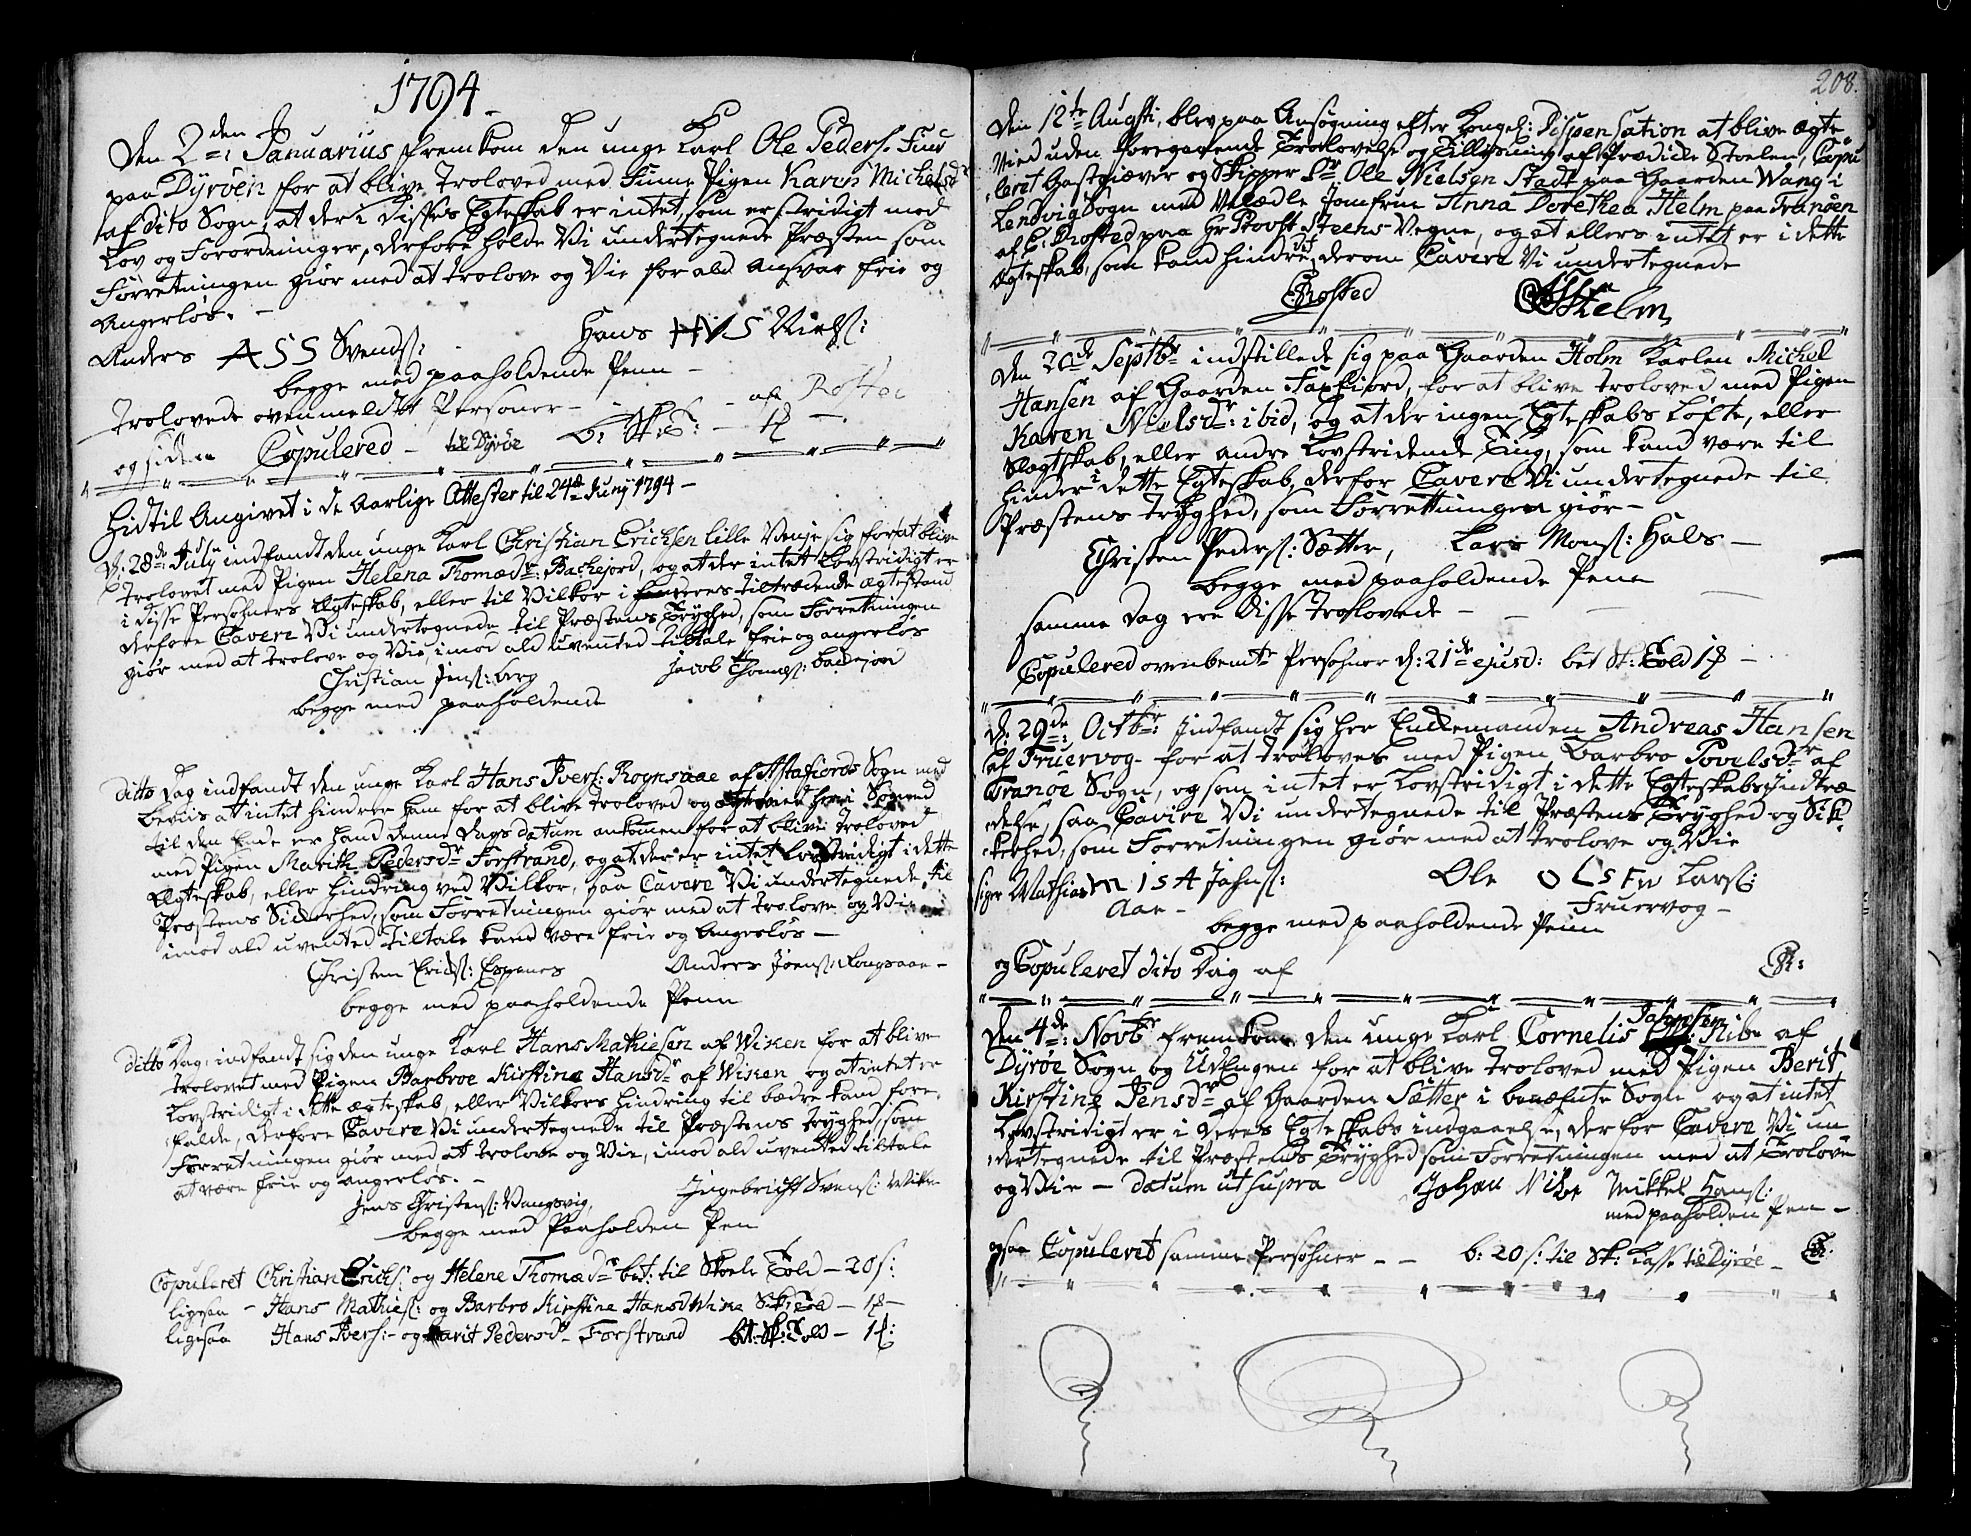 1794
Den 2den Januarius fremkom den unge Karl Ole Peders. Find
paa Dyrøen for at blive Troloved med Finne Pigen Karen Michelsdr
af dito Sogn, at der i disses Egteskab er intet, som er stridigt mod
Lov og Forordninger, derfore holde Vi undertegnede Præsten som
Forretningen giør med at trolove og Vie for ald Ansvar frie og
Angerløs. -
Anders ASS Svends: Hans HNS Niels:
begge med paaholdende Penn -
Trolovede ovenmeldte Personer - - af
og siden Copulered - til Dyrøe b: Sk: - 1
Hidtil Angivet i de Aarlige Attester til 24de Junij 1794 -
d. 28de July indfandt den unge Karl Christian Erichsen lille Wenje sig for at blive
trolovet med Pigen Helena Thomædr: Backejord, og at der intet Lovstridigt er
i disse Persohners Ægteskab, eller til Vilkor i deres tiltrædende ægtestand
derfore Cavere Vi undertegnede til Præstens Tryghed, som Forretningen
giør med at trolove og Vie, imod ald uvented tiltale frie og angerløs
Christian Jens: Berg Jacob Thomes: Backejord
begge med paaholdende
ditto Dag indfandt den unge Karl Hans Ivers: Rognsaae af Astafiords Sogn med
beviis at intet hindrer ham for at blive troloved og
til den Ende er hand denne dags datum ankommen for at blive troloved
med Pigen Marith Pedersdr Forstrand, og at der er intet Lovstridigt i dette
Ægteskab, eller hindring ved Vilkor, saa Cavere Vi undertegnede til
Præstens Sickerhed, som Forretningen giør med at trolove og Vie
imod ald uvented tiltale kand være frie og Angerløs -
Christen Erichs: Espenes Anders Joens: Rongsaae -
begge med paaholdende Penn
ditto Dag indfandt sig den unge Karl Hans Mathiesen af Wiken for at blive
trolovet med Pigen Barbroe Kirstine Hansdr af Wiken og at intet er
Lovstridigt i dette ægteskab, eller Vilkors hindring til bædre kand fore-
falde, derfore Cavere Vi undertegnede til Præstens tryghed, som
Forretningen giør med at trolove og Vie, imod ald uvented tiltale
at være frie og angerløs. -
Jens Christens: Vangsvig, Ingebricht Svens: Wiken
begge med Paaholden Pen
Copuleret Christian Erichs: og Helene Thomædr bet: til Skole Told - 20 s:
ligesaa - Hans Mathies: og Barbro Kirstine Hansd Wike Sk: Told - 1
ligesaa Hans Ivers: - og Marit Pedersdr Forstrand bt: Sk: Told - 1
208.
Den 12te Augsti, blev paa Ansøgning efter Kongel: Dispensation at blive ægte
Vied uden foregaaende Trolovelse og Tillysning af Prædicke Stoelen, Copu
leret Gastgiæver og Skipper Sr Ole Nielsen Stadt paa Gaarden Wang i
Lendvig Sogn med Velædle Jomfrue Anna Dorethea Helm paa Tranøen
af E: Brofted paa Hr Provst Steens Vegne, og at ellers intet er i dette
Ægteskab, som kand hindre, derom Cavere Vi undertegnede
Helm
Den 20de Septbr indstillede sig paa Gaarden Holm Karlen Michel
Hansen af Gaarden Faxfiord, for at blive troloved med Pigen
Karen Nielsdr: ibid, og at der ingen Egteskabs Løfte, eller
Slægtskab, eller andre Lovstridende Ting, som kand være til
hinder i dette Egteskab, derfor Cavere Vi undertegnede til
Præstens tryghed, som Forrettningen giør -
Christen Peders: Sætter, Lars Mons: Hals -
begge med paaholdende Penn
samme dag ere disse Trolovede -
Copulered ovenbemte Persohner d: 21de ejusd: bet Sk: Told 1 -
d: 29de: Octbr: Indfandt sig her Enckemanden Andreas Hansen
af Fruervog for at troloves med Pigen Barbro Povelsdr af
Tranøe Sogn, og som intet er Lovstridigt i dette Egteskabs Indtræ
delse, saa Cavire Vi undertegnede til Præstens Tryghed og Sic
kerhed, som Forretningen giør med at trolove og Vie
siger Mathias m 1 s A Jahns: Ole O L S Fw Lars:
Aae - Fruervog -
begge med paaholdende Penn
og Copuleret dito Dag af
Den 4de: Novbr fremkom den unge Karl Cornelis Jahnsen Nibe af
Dyrøe Sogn og UdEngen for at blive troloved med Pigen Berit
Kirstine Jensdr af Gaarden Sætter i benæfnte Sogn og at intet
Lovstridigt er i Deres Egteskabs indgaaelse, derfor Cavere Vi un
dertegnede til Præstens Tryghed som Forretningen med at Trolove
og Vie - datum ut supra Johan Mikkel Hans:
med paaholden Pen -
ogsaa Copuleret samme Persohner - - b: 20 s: til Sk: Casse til Dyrøe -